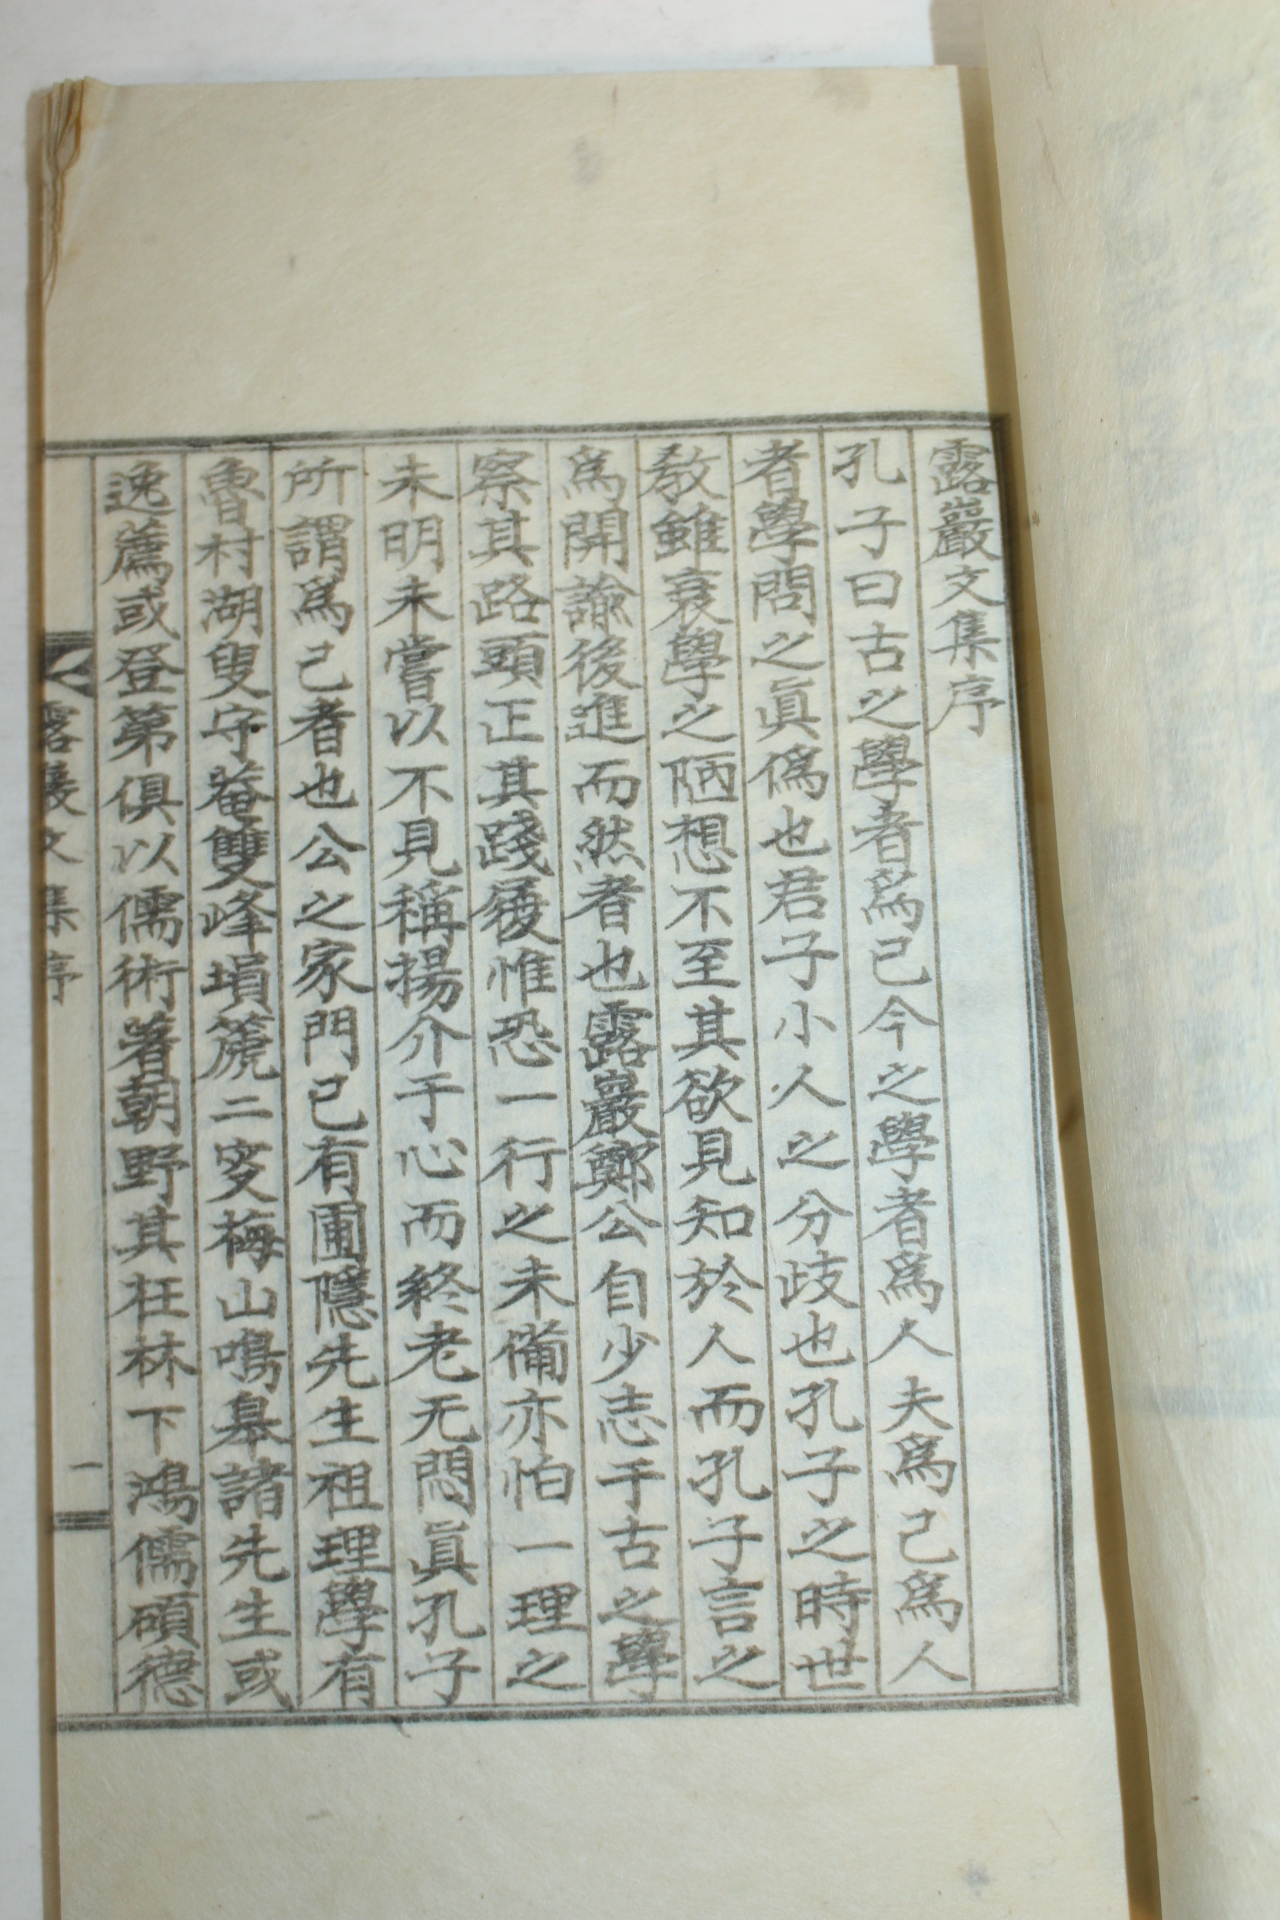 露巖文集序
孔子曰古之學者爲己今之學者爲人夫爲己爲人
者學問之眞僞也君子小人之分歧也孔子之時世
敎雖衰學之陋想不至其欲見知於人而孔子言之
爲開諭後進而然者也露巖鄭公自少志于古之學
察其路頭正其踐履惟恐一行之未備亦怕一理之
未明未嘗以不見稱揚介于心而終老无悶眞孔子
所謂爲己者也公之家門己有圃隱先生祖理學有
魯村湖叟守菴雙峰塤篪二叟梅山鳴皋諸先生或
逸薦或登第俱以儒術著朝野其在林下鴻儒碩德
露巖文集序
一